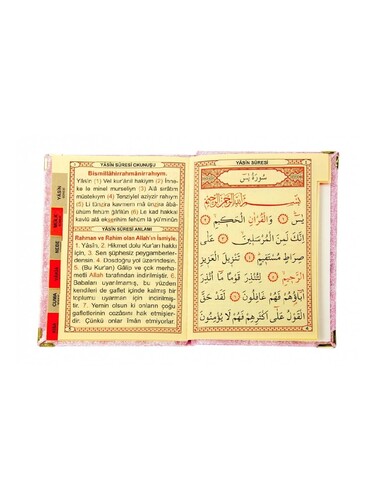 YÂSÎN SÛRESİ OKUNUŞU
Bismillâhirrahmânirrahıym.
Yâsîn (1) Vel kur'ânil hakiym (2) İnne-
ke le minel murselıyn (3) Alâ sırâtim
mustekıym (4) Tenziylel aziyzir rahıym
(5) Li tünzira kavmem mâ ünzira âbâ-
ühüm fehüm ğâfilûn (6) Le kad hakkal
kavlü alâ ekserihim fehüm lâ yü'minûn
YÂSÎN SÛRESİ ANLAMI
Rahman ve Rahim olan Allah'ın İsmiyle.
1. Yâsîn. 2. Hikmet dolu Kur'an hakkı
için, 3. Sen şüphesiz peygamberler-
densen. 4. Dosdoğru yol üzerindesin.
5. (Bu Kur'an) Gâlip ve çok merha-
metli Allah tarafından indirilmiştir. 6.
Babaları uyarılmamış, bu yüzden
kendileri de gaflet içinde kalmış bir
toplumu uyarman için indirilmiş-
tir. 7. Yemin olsun ki onların çoğu
gafletlerinin cezâsını hak etmişler-
dir. Çünkü onlar îman etmiyorlar.
YÂSÎN
CUMA
YÂSÎN SÛRESİ
سُورَةُ يٰسٓ
بِسْمِ اللّٰهِ الرَّحْمٰنِ الرَّحِيمِ
يٰسٓ ﴿١﴾ وَالْقُرْاٰنِ الْحَكِيمِ ﴿٢﴾
اِنَّكَ لَمِنَ الْمُرْسَلِينَ ﴿٣﴾ عَلٰى
صِرَاطٍ مُسْتَقِيمٍ ﴿٤﴾ تَنْزِيلَ الْعَزِيزِ
الرَّحِيمِ ﴿٥﴾ لِتُنْذِرَ قَوْمًا مَٓا اُنْذِرَ
اٰبَٓاؤُهُمْ فَهُمْ غَافِلُونَ ﴿٦﴾ لَقَدْ حَقَّ
الْقَوْلُ عَلٰٓى اَكْثَرِهِمْ فَهُمْ لَا يُؤْمِنُونَ